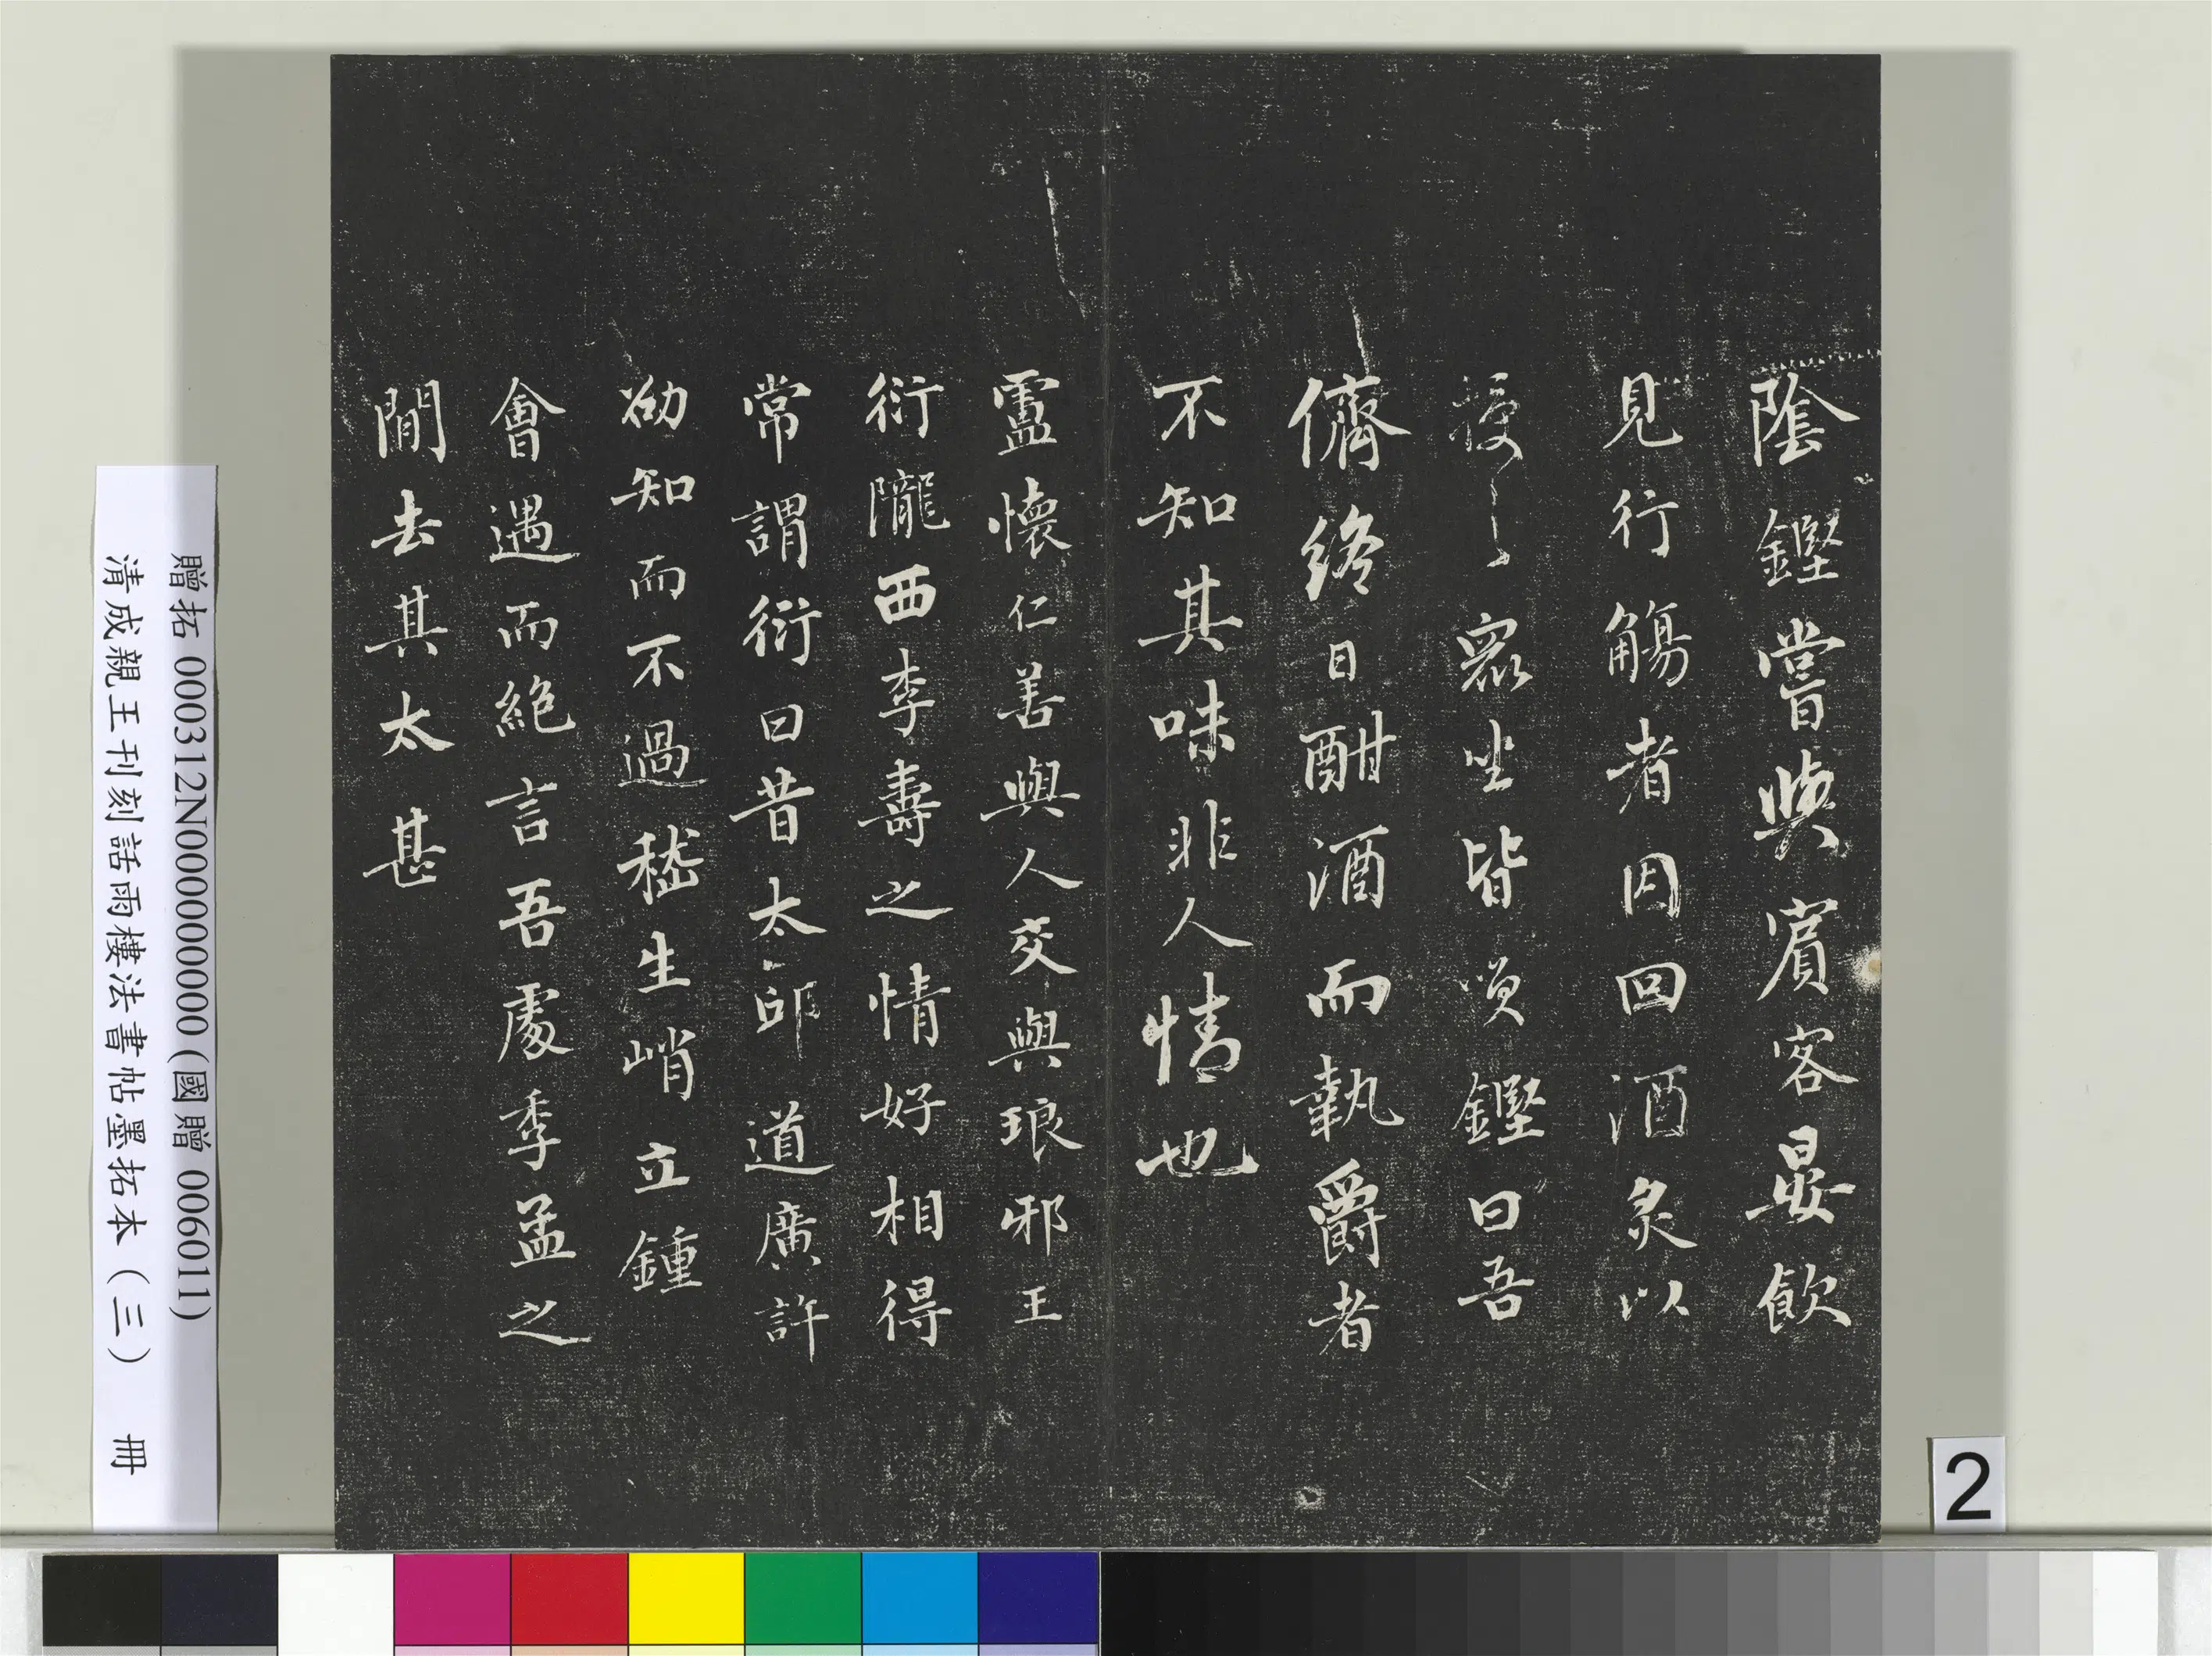 陰鏗嘗與賓客晏飲
見行觴者因回酒炙以
授之衆坐皆哭鏗曰吾
儕終日酣酒而執爵者
不知其味非人情也
盧懷仁善與人交與琅邪王
衍隴西李壽之情好相得
常謂衍曰昔太邱道廣許
劭知而不過嵇生峭立鍾
會遇而絕言吾處季孟之
間去其太甚
贈拓 000312N000000000(國贈 006011)
清成親王刊刻話雨樓法書帖墨拓本(三) 冊
2